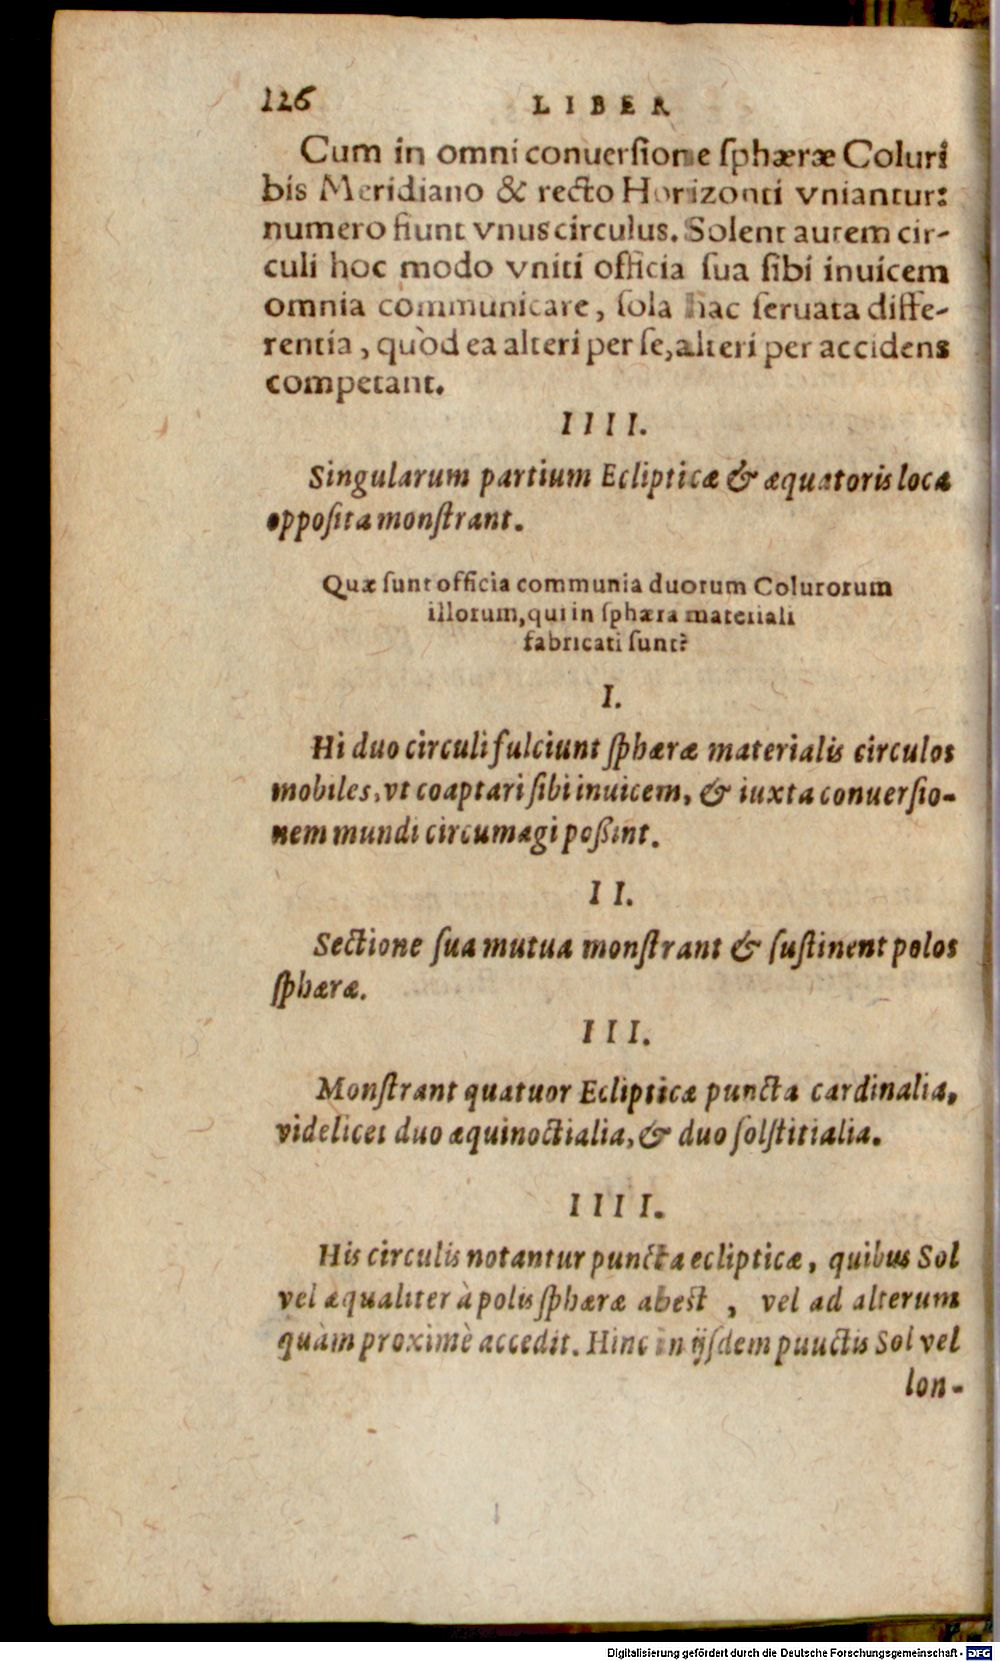 126 LIBER
Cum in omni conuersione sphæræ Coluri
bis Meridiano & recto Horizonti vniantur:
numero fiunt vnus circulus. Solent autem cir-
culi hoc modo vniti officia sua sibi inuicem
omnia communicare, sola hac seruata diffe-
rentia, quòd ea alteri per se, alteri per accidens
competant.
IIII.
Singularum partium Eclipticæ & æquatoris loca
opposita monstrant.
Quæ sunt officia communia duorum Colurorum
illorum, qui in sphæra materiali
fabricati sunt?
I.
Hi duo circuli fulciunt sphæræ materialis circulos
mobiles, vt coaptari sibi inuicem, & iuxta conuersio-
nem mundi circumagi poßint.
II.
Sectione sua mutua monstrant & sustinent polos
sphæræ.
III.
Monstrant quatuor Eclipticæ puncta cardinalia,
videlicet duo æquinoctialia, & duo solstitialia.
IIII.
His circulis notantur puncta eclipticæ, quibus Sol
vel æqualiter à polis sphæræ abest, vel ad alterum
quàm proximè accedit. Hinc in ijsdem puuctis Sol vel
lon-
Digitalisierung gefördert durch die Deutsche Forschungsgemeinschaft - DFG